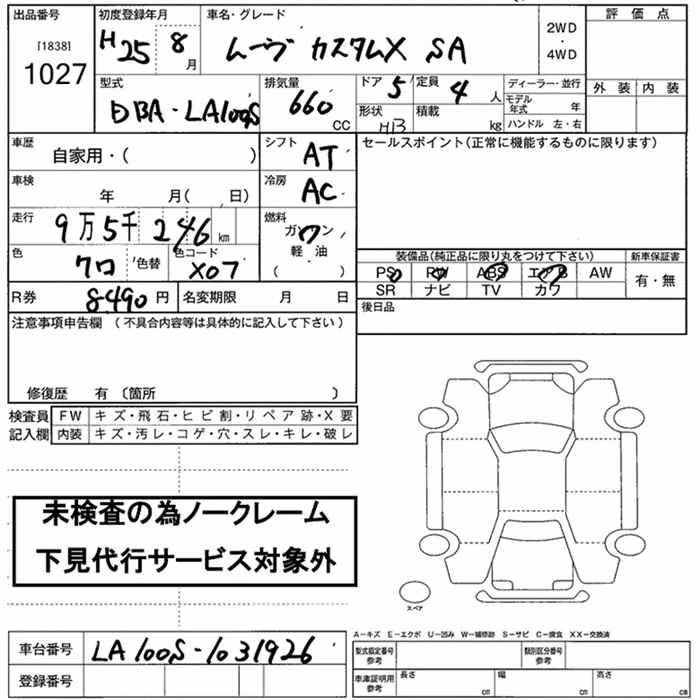 出品番号 初度登録年月 車名・グレード 評価点
[1838] 1027 H25 8月 ムーヴ カスタムX SA 2WD・4WD
型式 排気量 ドア 5 定員 4人 ディーラー・並行 外装 内装
DBA・LA100S 660 CC 形状 H/B 積載 kg モデル年式 年
ハンドル 左・右
車歴 自家用・( ) シフト AT セールスポイント(正常に機能するものに限ります)
車検 年 月( 、日) 冷房 AC
走行 9万5千246km 燃料 ガソリン
色 クロ 色替 色コード X07 軽油 ( )
装備品(純正品に限り丸をつけて下さい) 新車保証書
PS PW ABS エアB AW 有・無
SR ナビ TV カワ
R券 8490円 名変期限 月 日 後日品
注意事項申告欄 (不具合内容等は具体的に記入して下さい)
修復歴 有 〔箇所 〕
検査員記入欄 FW キズ・飛石・ヒビ割・リペア跡・X要
内装 キズ・汚レ・コゲ・穴・スレ・キレ・破レ
未検査の為ノークレーム
下見代行サービス対象外
スペア
A−キズ E−エクボ U−凹み W−補修跡 S−サビ C−腐食 XX−交換済
車台番号 LA100S-1031926 型式指定番号 参考 類別区分番号 参考
登録番号 車庫証明用 参考 長さ cm 幅 cm 高さ cm